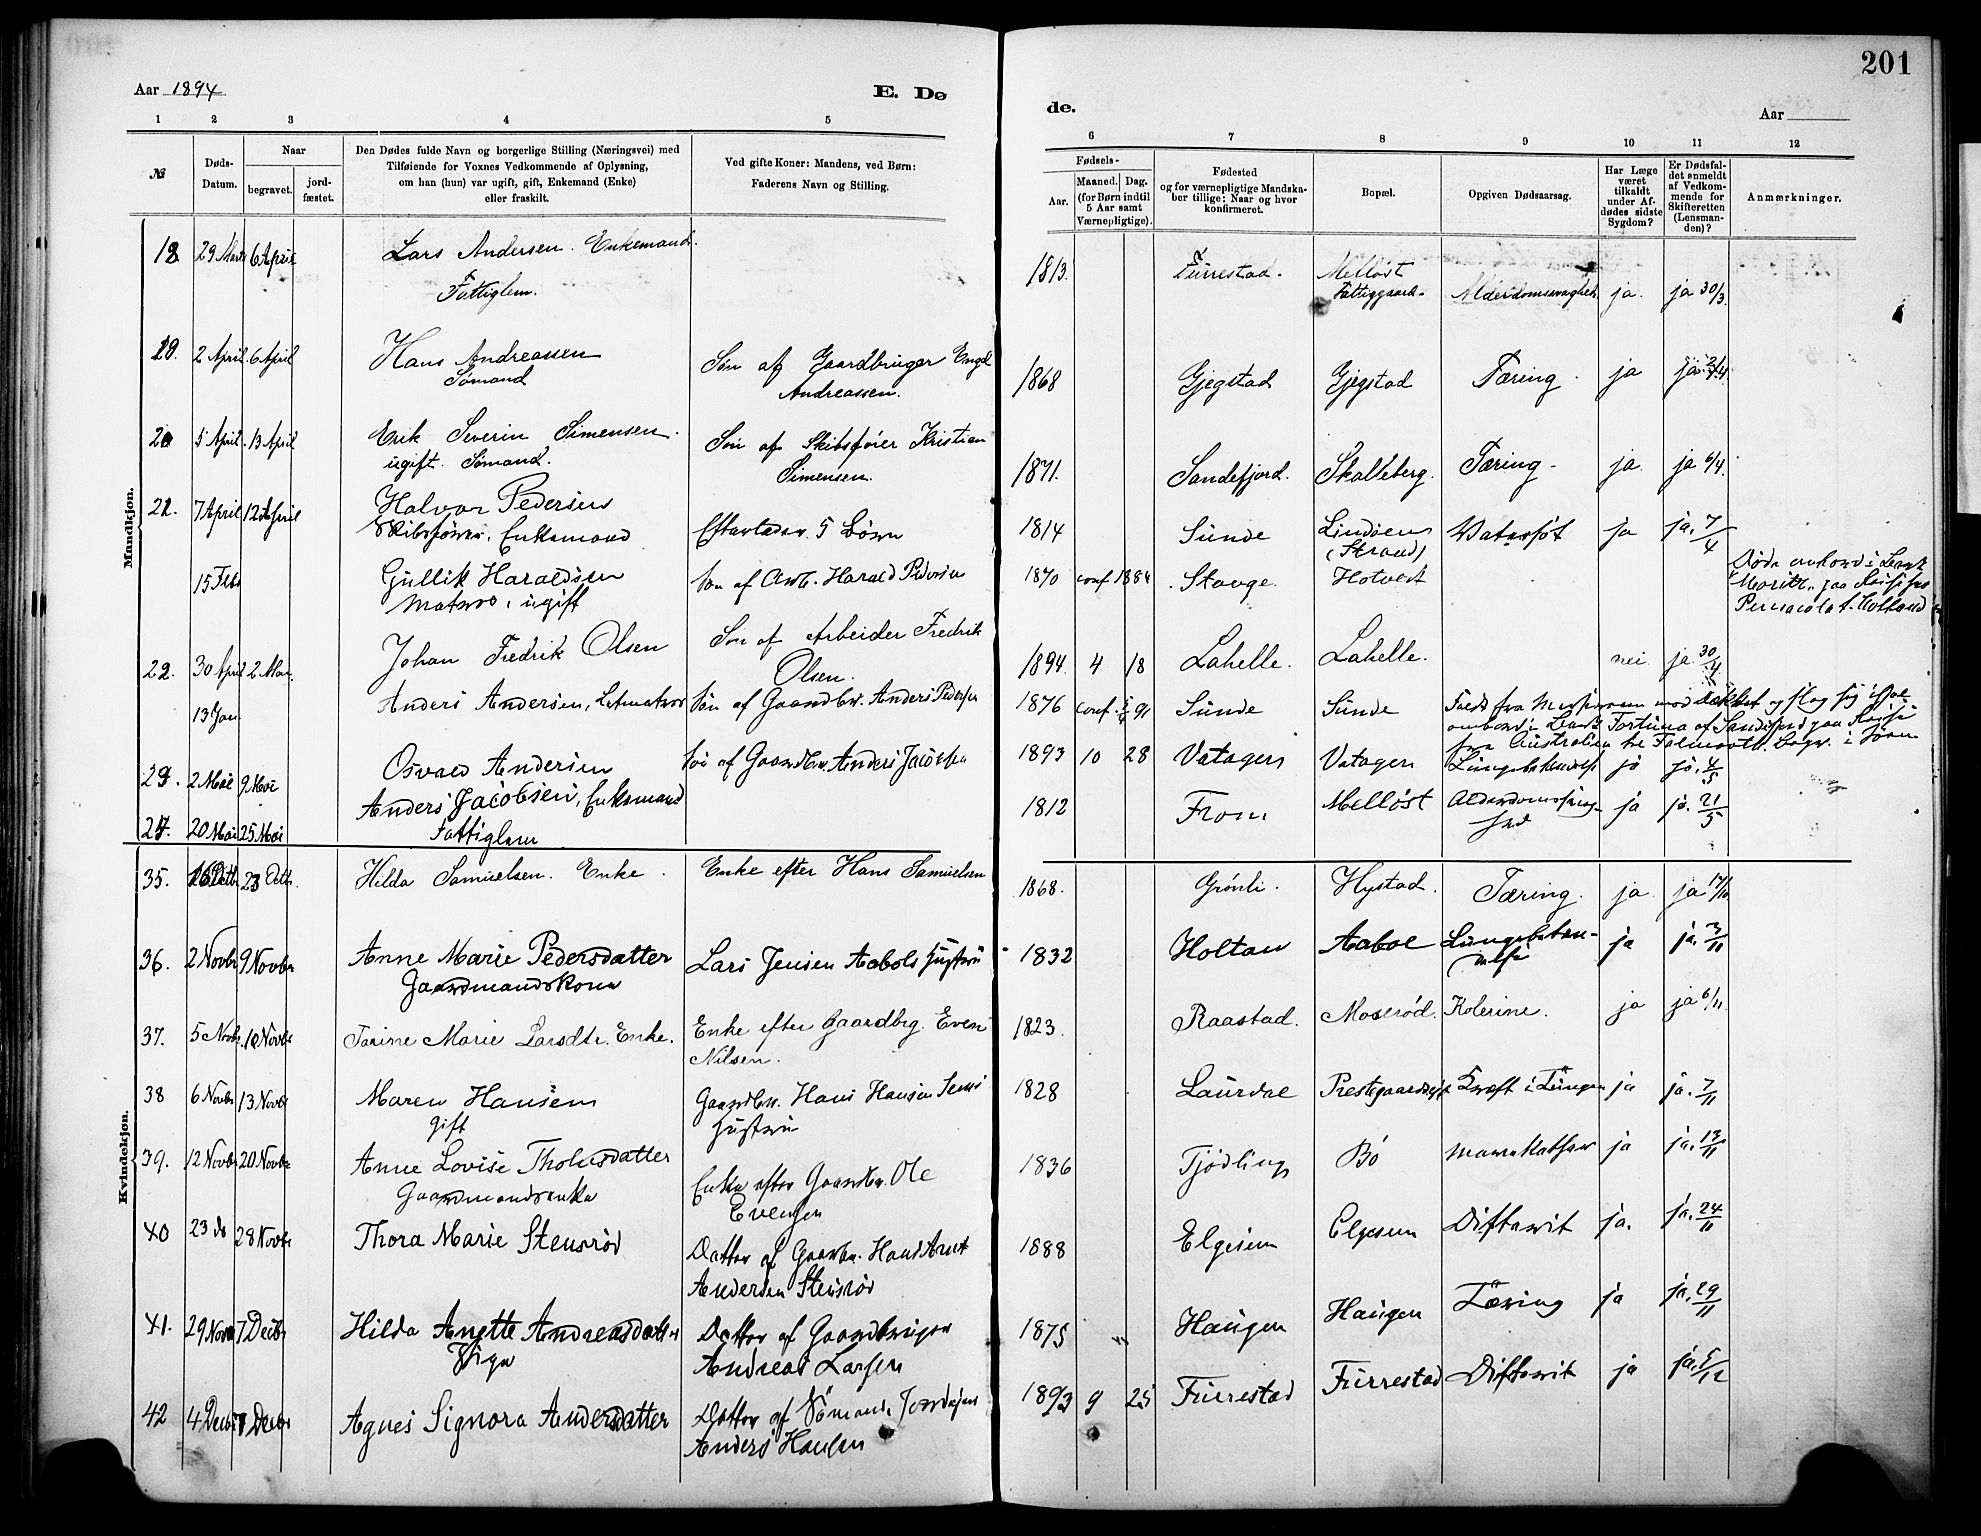 201
Aar 1894
E. Dø
de.
Aar
1 2 3 4 5
6 7 8 9 10 11 12
№
Døds-
Datum.
Naar
begravet.
jord-
fæstet.
Den Dødes fulde Navn og borgerlige Stilling (Næringsvei) med
Tilføiende for Voxnes Vedkommende af Oplysning,
om han (hun) var ugift, gift, Enkemand (Enke)
eller fraskilt.
Ved gifte Koner: Mandens, ved Børn:
Faderens Navn og Stilling.
Fødsels-
Aar.
Maaned. Dag.
(for Børn indtil
5 Aar samt
Værnepligtige).
Fødested
og for værnepligtige Mandska-
ber tillige: Naar og hvor
konfirmeret.
Bopæl.
Opgiven Dødsaarsag.
Har Læge
været
tilkaldt
under Af-
dødes sidste
Sygdom?
Er Dødsfal-
det anmeldt
af Vedkom-
mende for
Skifteretten
(Lensman-
den)?
Anmærkninger.
Mandkjøn.
18. 29 Marts 6 April Lars Andersen. Enkemand. 1813. Furrestad. Melløst ja. ja 30/3.
Fattiglem. Fattiggaard. Alderdomssvaghed
19. 2 April 6 April Hans Andreassen Søn af Gaardbruger Engel 1868 Gjegstad Gjegstad Tæring. ja ja. 2/4.
Sømand Andreassen.
20 5 April. 13 April Erik Severin Simensen. Søn af Skibsfører Kristian 1871. Sandefjord. Skalleberg. Tæring. ja. ja 6/4.
ugift. Sømand. Simensen.
21. 7 April 12 April Halvor Pedersen 1814 Sunde Lindøen Vatersot ja ja. 7/4
Skibsfører, Enkemand Efterlader 5 Børn (Strand)
15 Febr Gullik Haraldsen Søn af Arb. Harald Pedersen 1870 conf. 1884 Stange. Hotvedt
Matros, ugift
Døde ombord i Bark
Moritz, paa Reise fra
Pensacola t. Holland
22. 30 April 2 Mai. Johan Fredrik Olsen Søn af Arbeider Fredrik 1894. 4 18 Lahelle. Lahelle. nei. ja 30/4
Olsen.
13 Jan. Anders Andersen, Letmatros Søn af Gaardbr. Anders Pedersen 1876 conf. 91 Sunde Sunde
ombord i Bark Fortuna af Sandefjord paa Reise
fra Australien
23. 2 Mai 9 Mai Osvald Andersen Søn af Gaardbr. Anders Jacobsen 1893 10 28 Vatagen Vatagen Lungebetændelse ja ja. 4/5
24. 20 Mai 25 Mai Anders Jacobsen, Enkemand 1812 From Melløst ja ja. 21/5
Fattiglem
Kvindekjøn.
35. 16 Octbr. 23 Octbr. Hilda Samuelsen. Enke. Enke efter Hans Samuelsen 1868. Grønli. Hystad. Tæring. ja. ja 17/10
36. 2 Novbr 9 Novbr Anne Marie Pedersdatter Lars Jensen Aabols Hustru 1832 Holtan Aabol Lungebetæn- ja ja. 3/11
Gaardmandskone delse
37. 5 Novbr. 10 Novbr Tarine Marie Larsdtr. Enke. Enke efter Gaardbrg. Even 1823. Raastad. Moserød. Kolerine. ja ja 6/11.
Nilsen.
38 6 Novbr 13 Novbr Maren Hansen Gaardbr. Hans Hansen 1828 Laurdal Kræft i Lungen ja ja. 7/11
gift Hustru
39. 12 Novbr 20 Novbr Anne Lovise Tholesdatter Enke efter Gaardbr. Ole 1836 Tjødling Bø ja ja. 13/11
Gaardmandsenke Evensen
40 23 do 28 Novbr Thora Marie Stensrød Datter af Gaardbr. Hans Arnt 1888 Elgesem Elgesem Difterit ja. ja. 24/11
Andersen Stensrød
41. 29 Novbr 7 Decbr Hilda Anette Andreasdatter Datter af Gaardbruger 1875 Haugen Haugen Tæring ja ja. 29/11
Pige Andreas Larsen
42 4 Decbr 7 Decbr Agnes Signora Andersdatter Datter af Sømand 1893 9 25 Furrestad Furrestad Difterit ja ja. 5/12
Anders Hansen